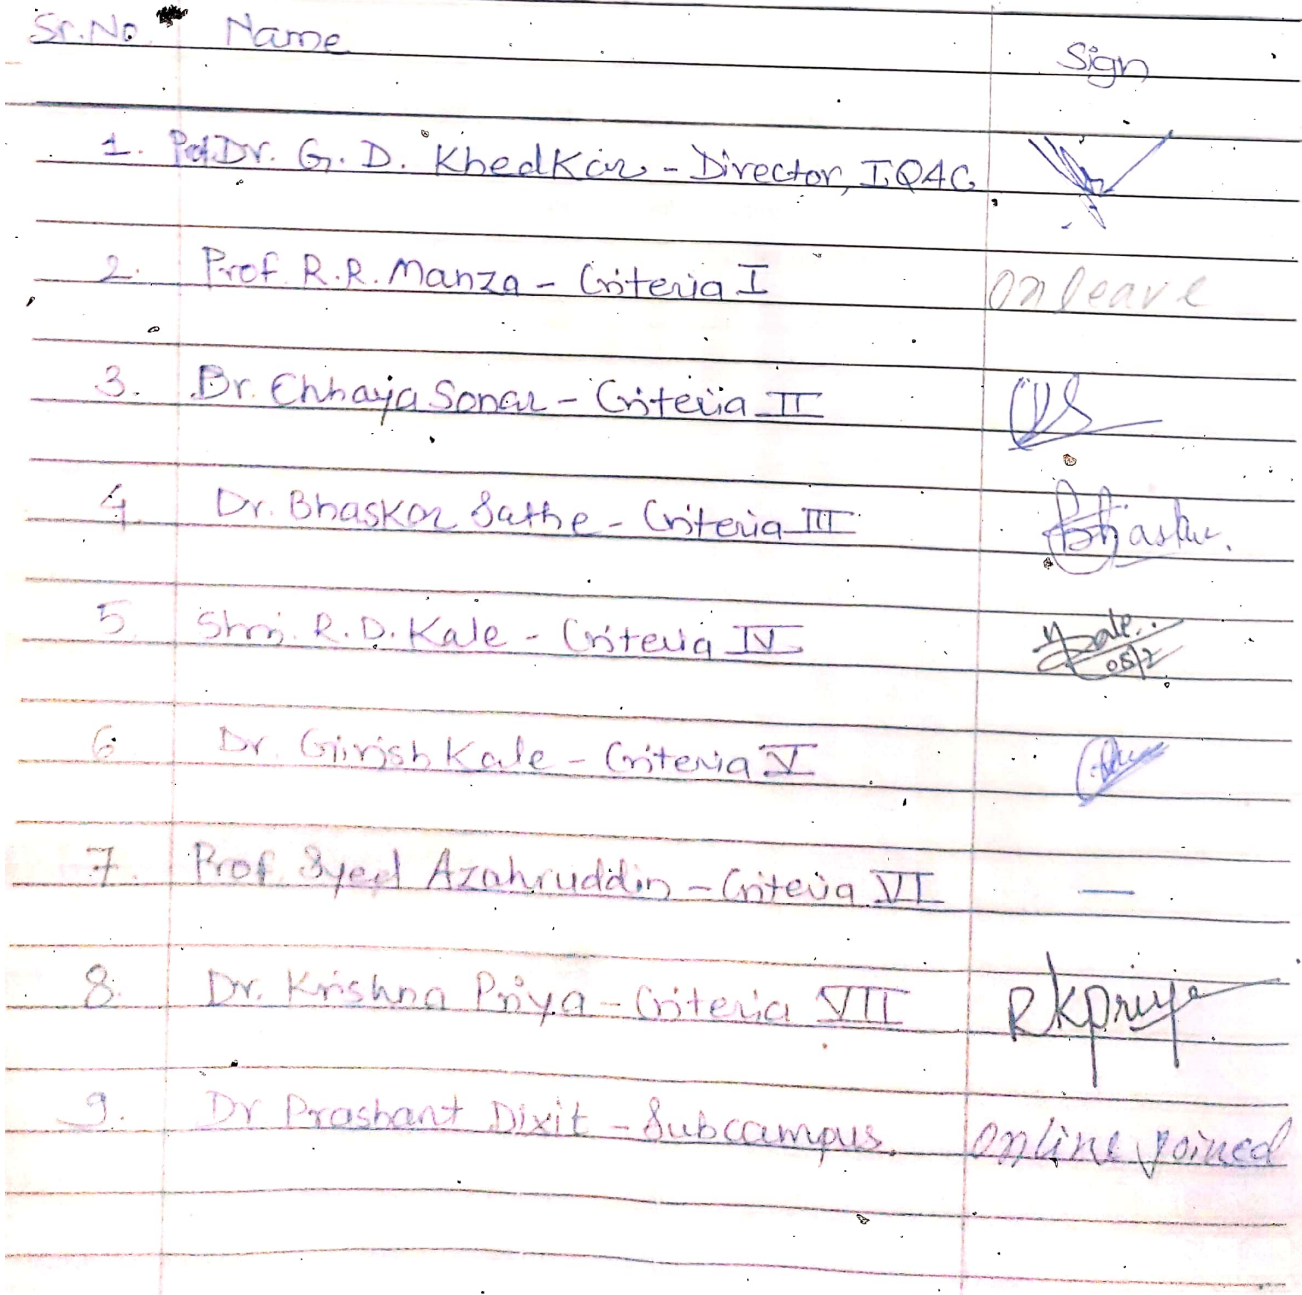 Sr.No. Name Sign
1. Prof.Dr. G. D. Khedkar - Director, IQAC
2. Prof. R.R. Manza - Criteria I on leave
3. Dr. Chhaya Sonar - Criteria II
4 Dr. Bhaskar Sathe - Criteria III Bhaskar.
5 Shri. R. D. Kale - Criteria IV Kale..
05/2
6 Dr Girish Kale - Criteria V
7. Prof. Syed Azahruddin - Criteria VI —
8. Dr. Krishna Priya - Criteria VII RKPriya
9. Dr Prashant Dixit - Subcampus. online joined